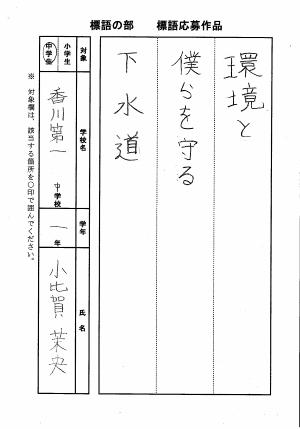 標語の部　標語応募作品
環境と
僕らを守る
下水道
対象
小学生
中学生
学校名
香川第一
中学校
学年
一年
氏名
小比賀 茉央
※ 対象欄は、該当する箇所を〇印で囲んでください。